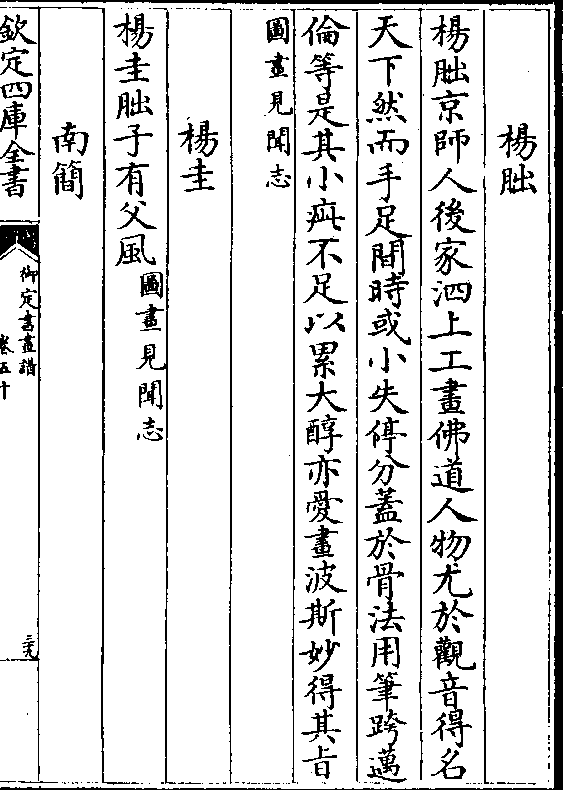 楊朏
楊朏京師人後家泗上工畫佛道人物尤於觀音得名
天下然而手足間時或小失停分蓋於骨法用筆跨邁
倫等是其小疵不足以累大醇亦愛畫波斯妙得其旨
圖畫見聞志
楊圭
楊圭朏子有父風圖畫見聞志
南簡
欽定四庫全書
御定書畫譜
卷五十
三九